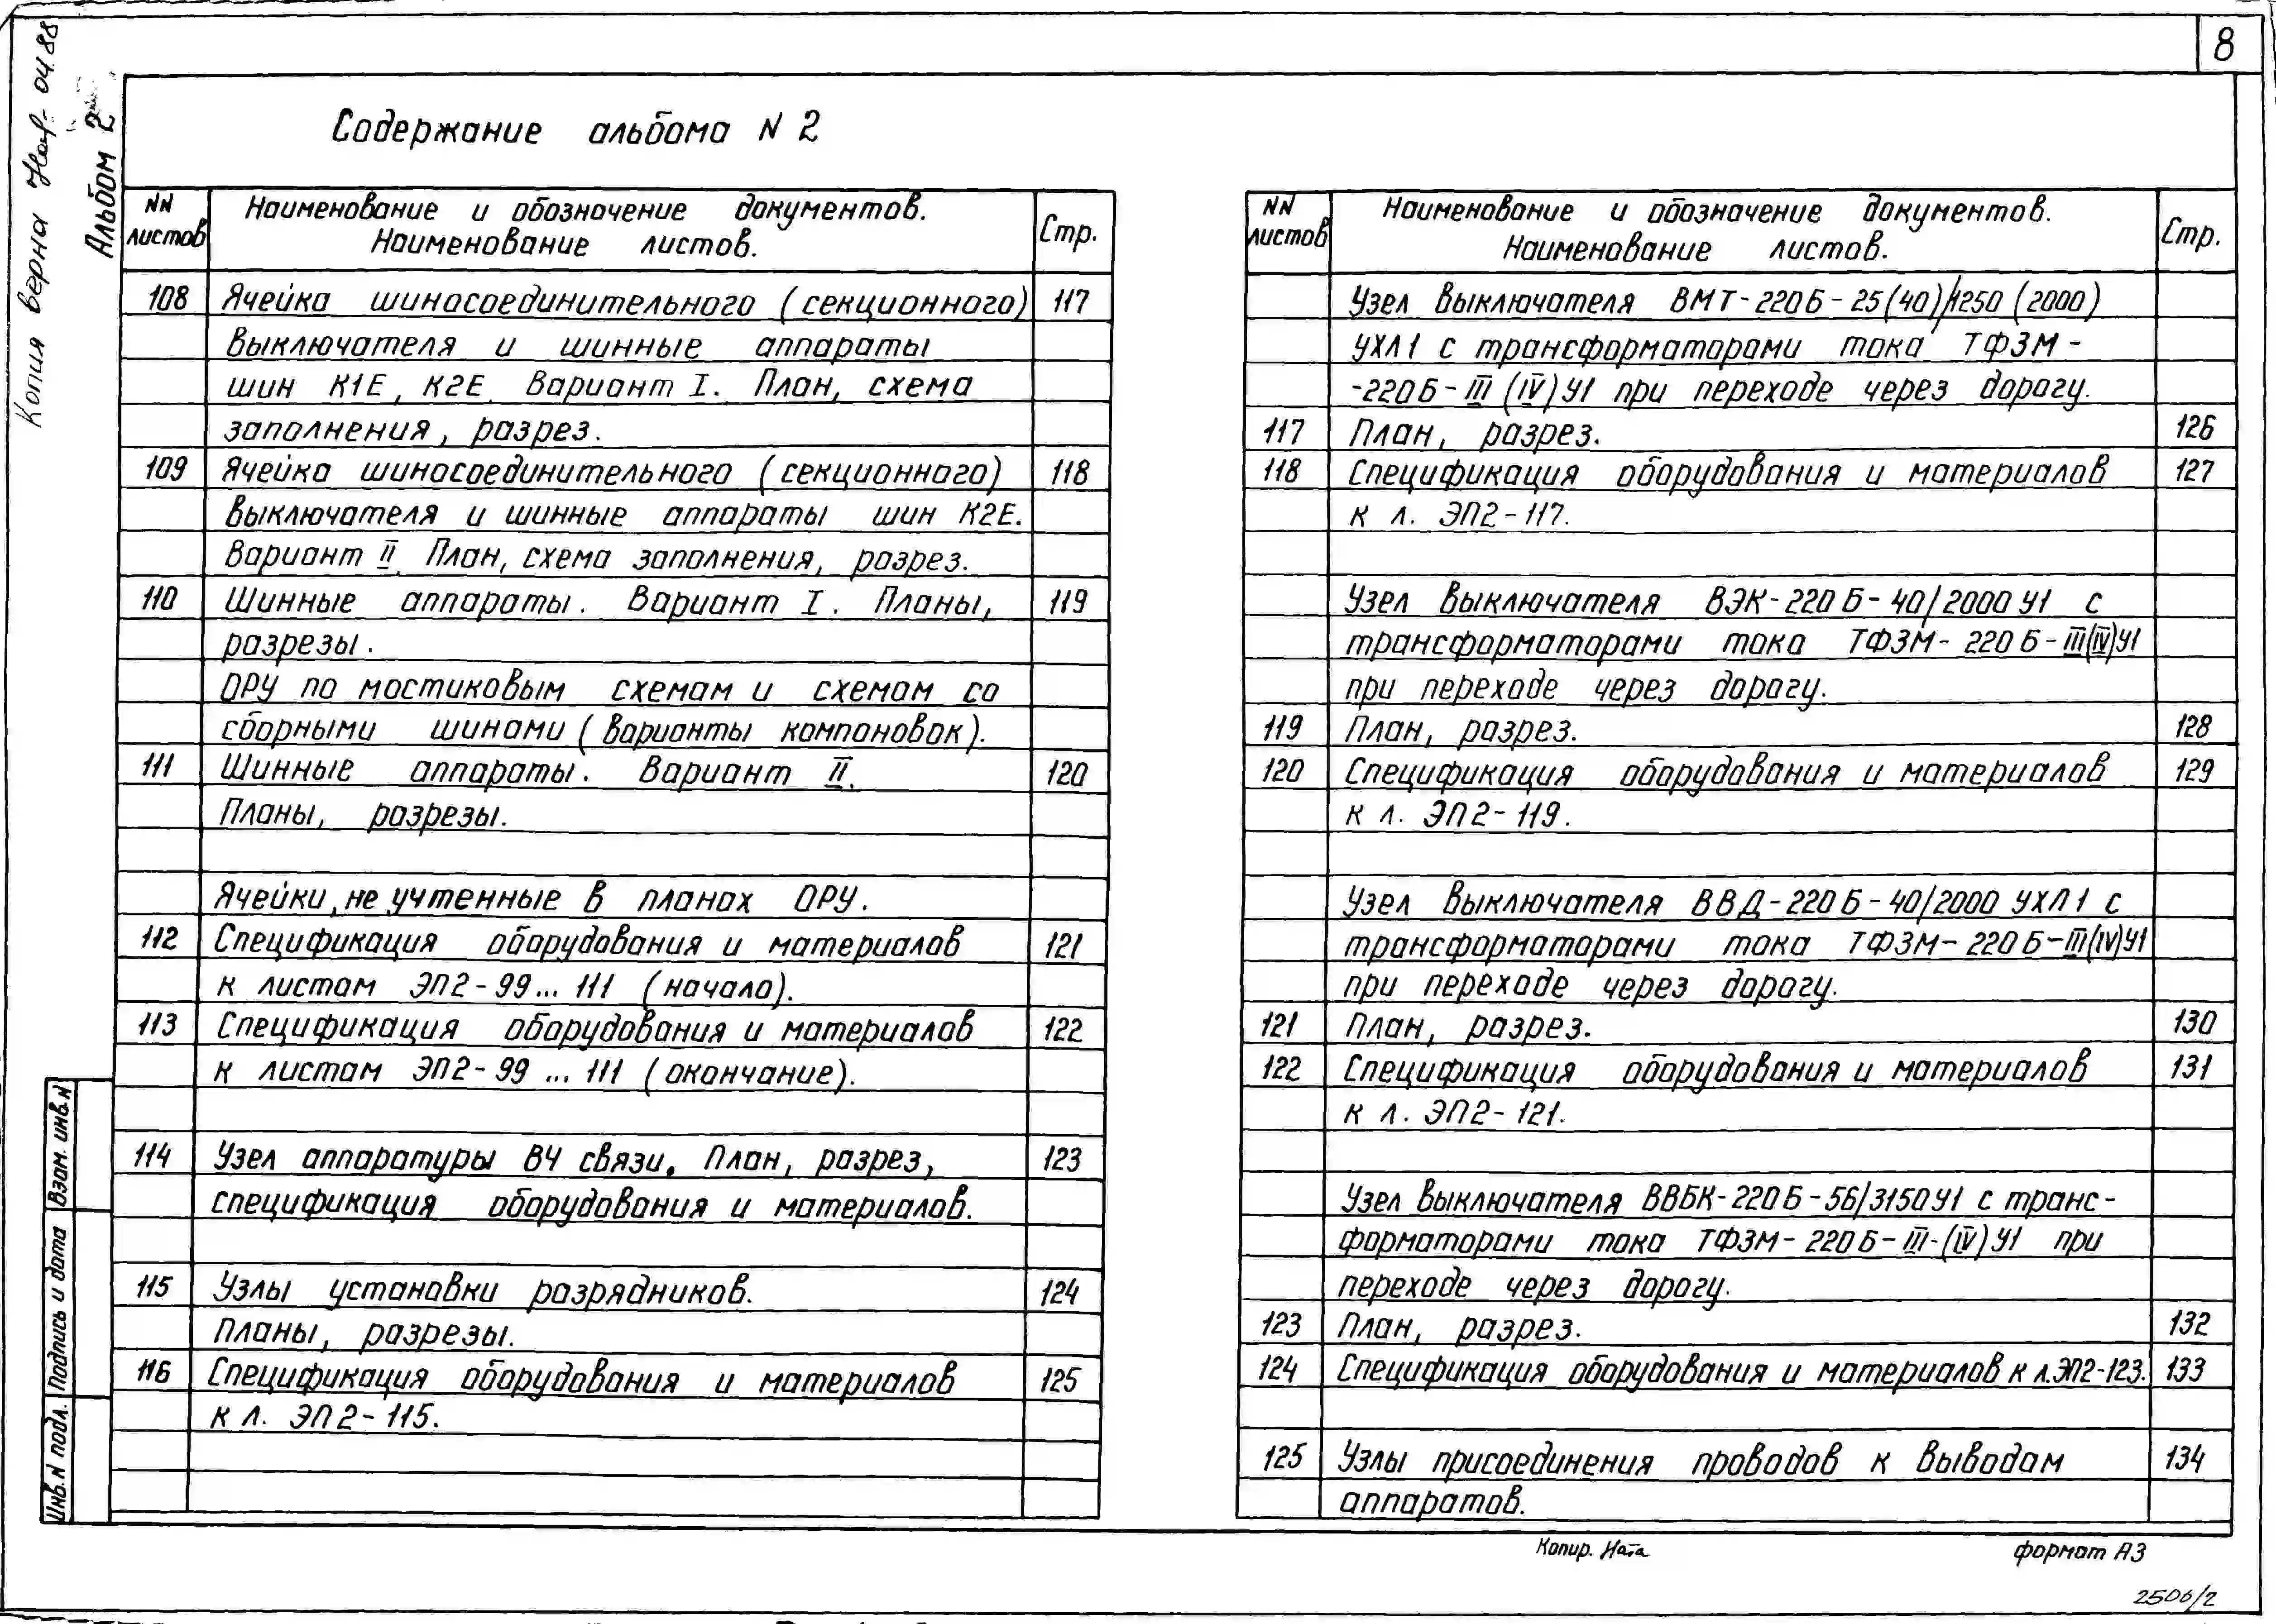 8
Копия верна 04.88
Альбом 2
Содержание альбома N 2
NN листов
Наименование и обозначение документов.
Наименование листов.
Стр.
108 Ячейка шиносоединительного (секционного) 117
выключателя и шинные аппараты
шин К1Е, К2Е. Вариант I. План, схема
заполнения, разрез.
109 Ячейка шиносоединительного (секционного) 118
выключателя и шинные аппараты шин К2Е.
Вариант II. План, схема заполнения, разрез.
110 Шинные аппараты. Вариант I. Планы, 119
разрезы.
ОРУ по мостиковым схемам и схемам со
сборными шинами (варианты компановок).
111 Шинные аппараты. Вариант II. 120
Планы, разрезы.
Ячейки, не учтенные в планах ОРУ.
112 Спецификация оборудования и материалов 121
к листам ЭП2-99... 111 (начало).
113 Спецификация оборудования и материалов 122
к листам ЭП2-99 ... 111 (окончание).
114 Узел аппаратуры ВЧ связи. План, разрез, 123
спецификация оборудования и материалов.
115 Узлы установки разрядников. 124
Планы, разрезы.
116 Спецификация оборудования и материалов 125
к л. ЭП2-115.
NN листов
Наименование и обозначение документов.
Наименование листов.
Стр.
Узел выключателя ВМТ-220Б-25(40)/1250 (2000)
УХЛ1 с трансформаторами тока ТФЗМ-
-220Б-III (IV) У1 при переходе через дорогу.
117 План, разрез. 126
118 Спецификация оборудования и материалов 127
к л. ЭП2-117.
Узел выключателя ВЭК-220Б-40/2000 У1 с
трансформаторами тока ТФЗМ-220Б-III(IV)У1
при переходе через дорогу.
119 План, разрез. 128
120 Спецификация оборудования и материалов 129
к л. ЭП2-119.
Узел выключателя ВВД-220Б-40/2000 УХЛ1 с
трансформаторами тока ТФЗМ-220Б-III(IV)У1
при переходе через дорогу.
121 План, разрез. 130
122 Спецификация оборудования и материалов 131
к л. ЭП2-121.
Узел выключателя ВВБК-220Б-56/3150У1 с транс-
форматорами тока ТФЗМ-220Б-III-(IV) У1 при
переходе через дорогу.
123 План, разрез. 132
124 Спецификация оборудования и материалов к л.ЭП2-123. 133
125 Узлы присоединения проводов к выводам 134
аппаратов.
Взам. инв. N
Подпись и дата
Инв. N подл.
Копир. Ната
формат А3
2506/2